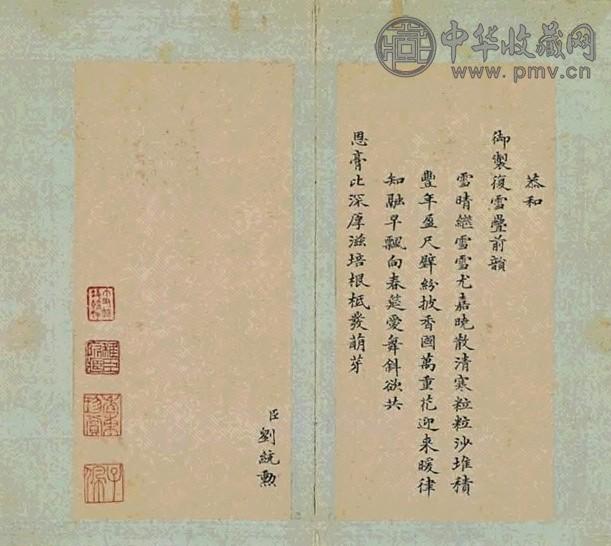 中华收藏网
www.pmv.cn
恭和
御製復雪疊前韻
雪晴繼雪雪尤嘉曉散清寒粒粒沙堆積
豐年盈尺壁紛披香國萬重花迎来暖律
知融早飄向春筵愛舞斜欲共
恩膏比深厚滋培根柢發萌芽
臣劉統勲